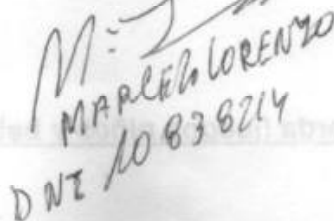 MARCELO LORENZO
DNI 10838214